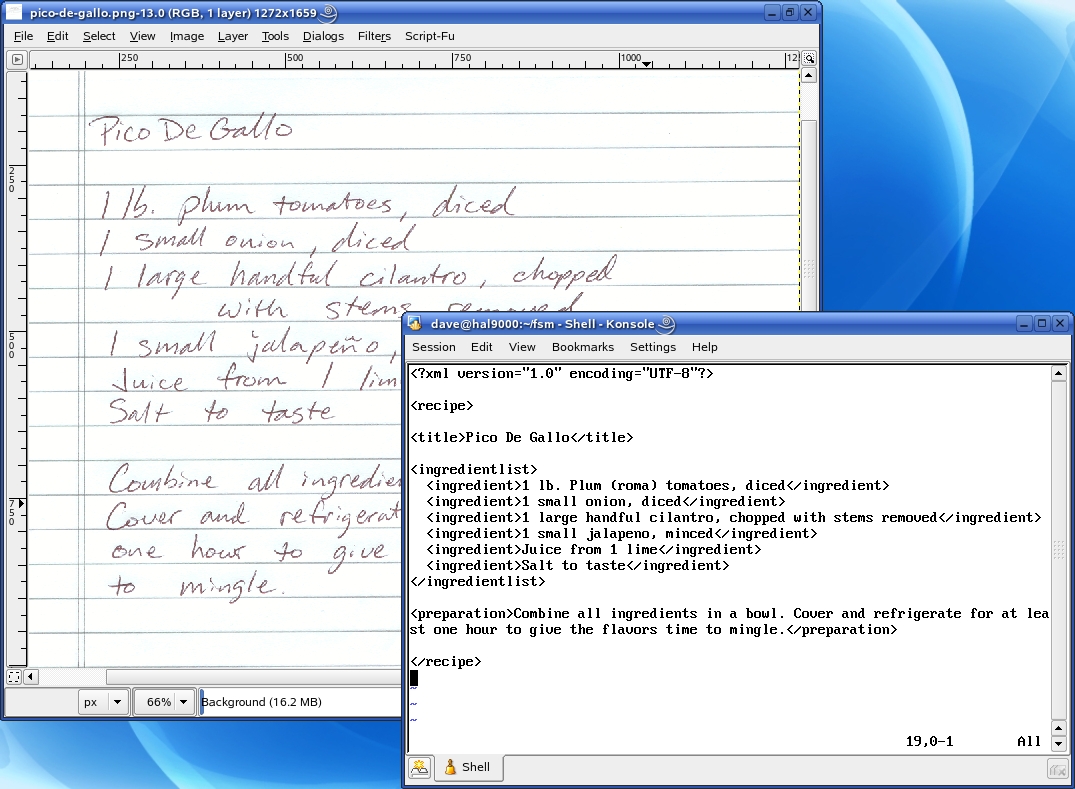 pico-de-gallo.png-13.0 (RGB, 1 layer) 1272x1659
File Edit Select View Image Layer Tools Dialogs Filters Script-Fu
250 500 750 1000 12
250
500
750
Pico De Gallo
1 lb. plum tomatoes, diced
1 small onion, diced
1 large handful cilantro, chopped
with stems removed
1 small jalapeño,
Juice from 1 lim
Salt to taste
Combine all ingredien
Cover and refrigerat
one hour to give
to mingle.
px 66% Background (16.2 MB)
dave@hal9000:~/fsm - Shell - Konsole
Session Edit View Bookmarks Settings Help
<?xml version="1.0" encoding="UTF-8"?>
<recipe>
<title>Pico De Gallo</title>
<ingredientlist>
<ingredient>1 lb. Plum (roma) tomatoes, diced</ingredient>
<ingredient>1 small onion, diced</ingredient>
<ingredient>1 large handful cilantro, chopped with stems removed</ingredient>
<ingredient>1 small jalapeno, minced</ingredient>
<ingredient>Juice from 1 lime</ingredient>
<ingredient>Salt to taste</ingredient>
</ingredientlist>
<preparation>Combine all ingredients in a bowl. Cover and refrigerate for at lea
st one hour to give the flavors time to mingle.</preparation>
</recipe>
~
~
~
19,0-1 All
Shell